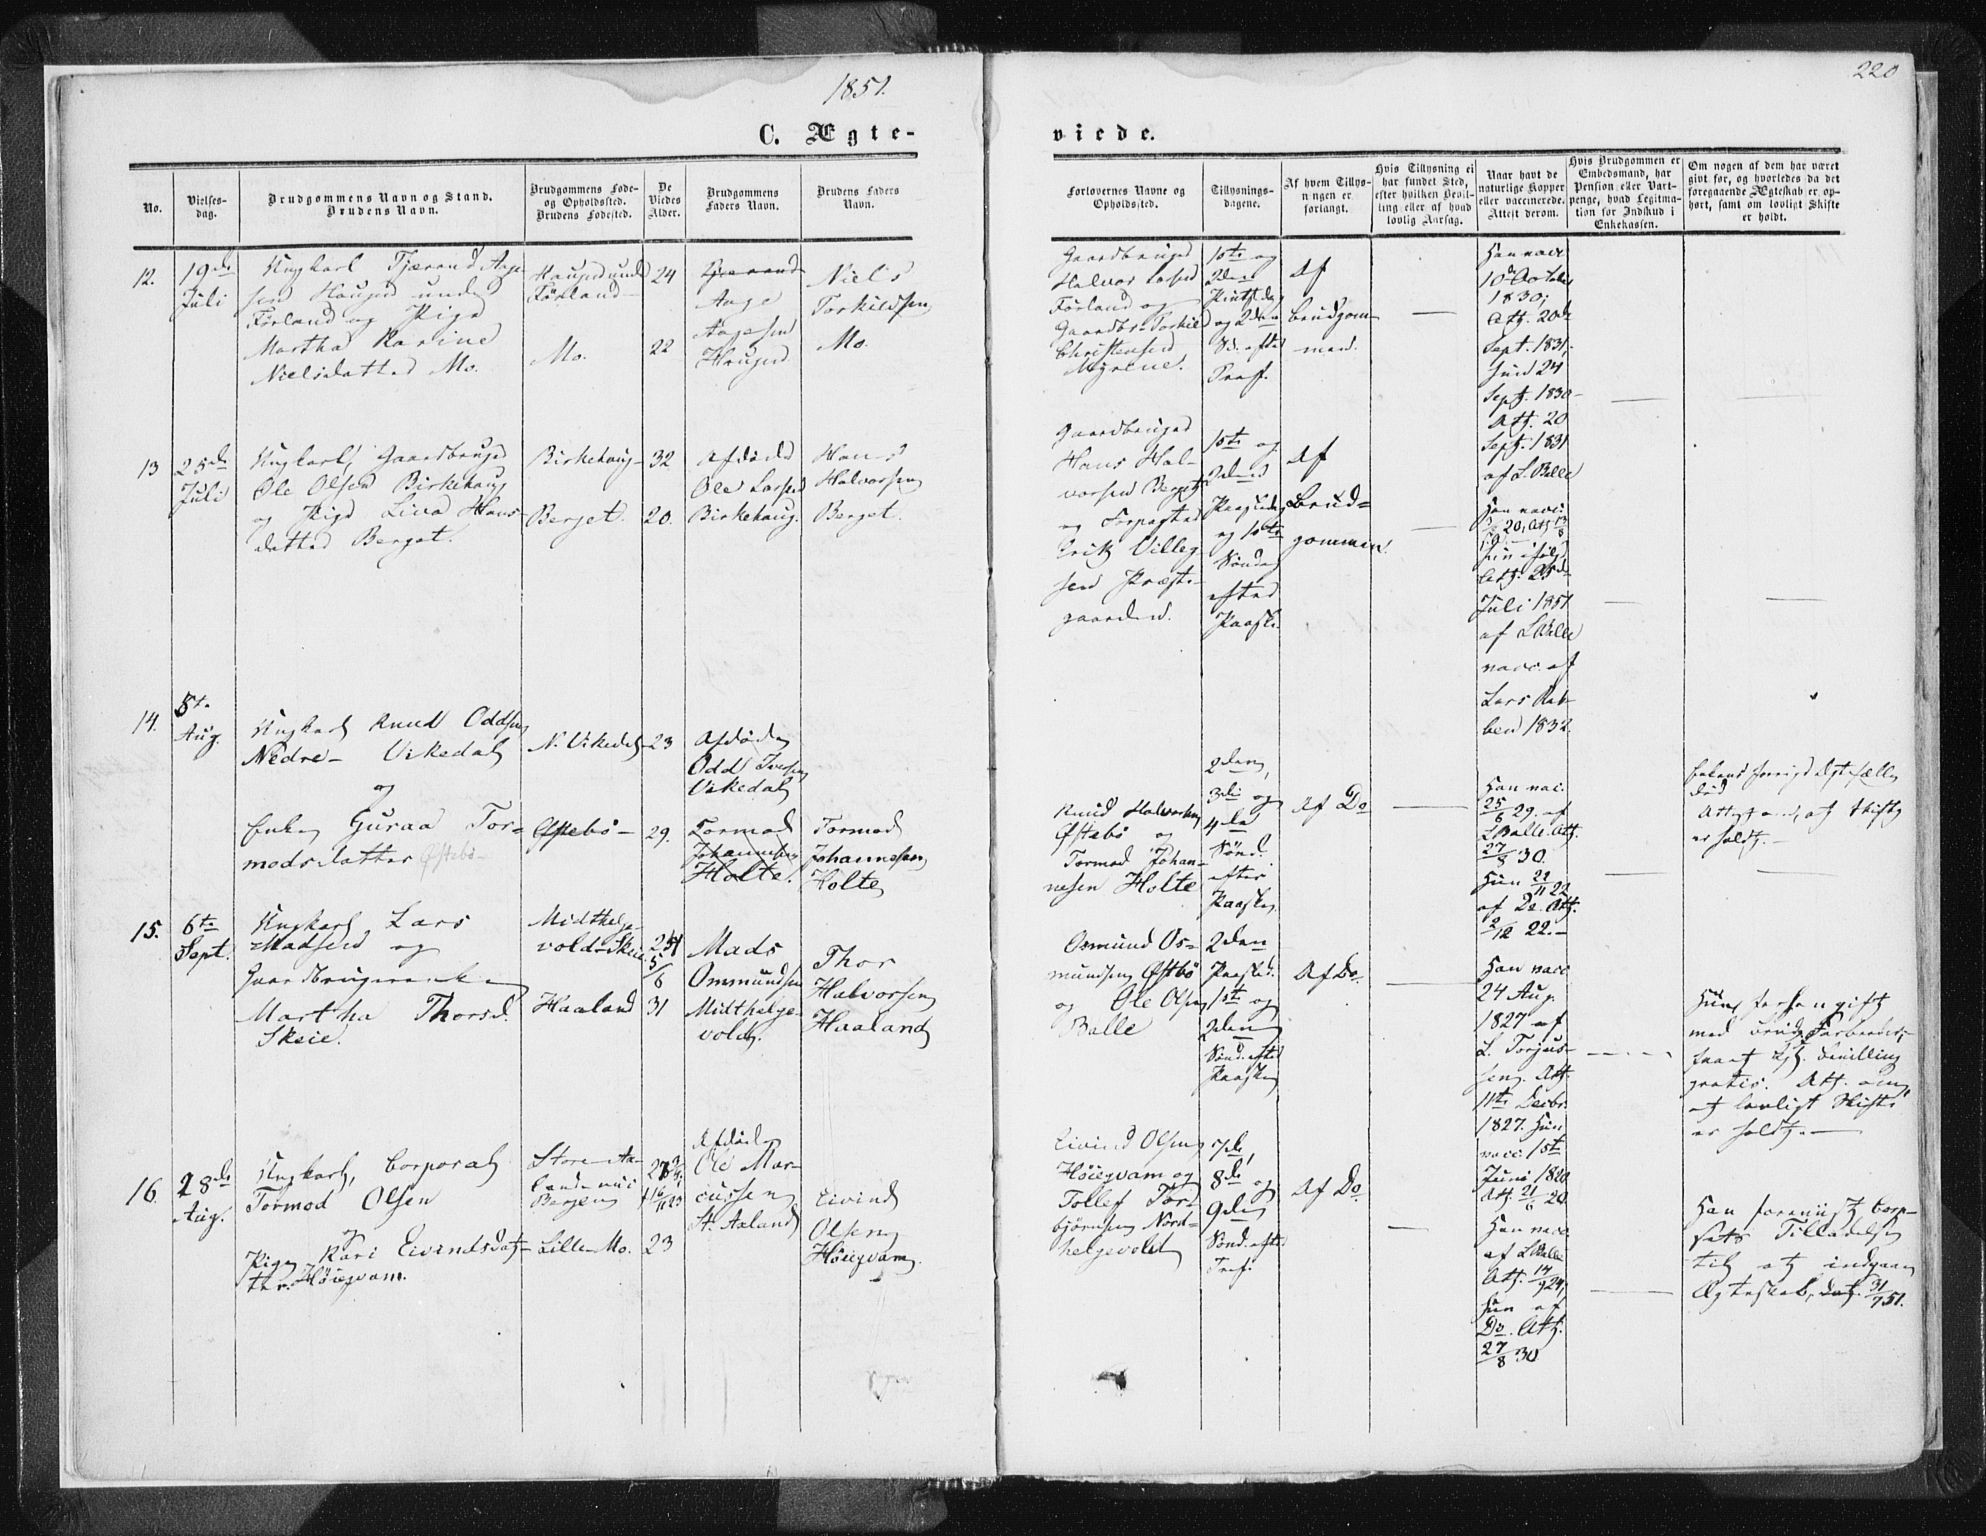 1851.
220
C. Ægte-
viede.
No.
Vielses-
dag.
Brudgommens Navn og Stand.
Brudens Navn.
Brudgommens Føde-
og Opholdssted.
Brudens Fødested.
De
Viedes
Alder.
Brudgommens
Faders Navn.
Brudens Faders
Navn.
Forlovernes Navne og
Opholdssted.
Tillysnings-
dagene.
Af hvem Tillys-
ningen er
forlangt.
Hvis Tillysning ei
har fundet Sted,
efter hvilken Bevil-
ling eller af hvad
lovlig Aarsag.
Naar havt de
naturlige Kopper
eller vaccinerede.
Attest derom.
Hvis Brudgommen er
Embedsmand, har
Pension eller Vart-
penge, hvad Legitima-
tion for Indskud i
Enkekassen.
Om nogen af dem har været
givt før, og hvorledes da det
foregaaende Ægteskab er op-
hørt, samt om lovligt Skifte
er holdt.
12.
19de
Juli
Ungkarl Tjærand Aage-
sen Hauged under
Førland og Pige
Martha Karine
Nielsdatter Mo.
Hauged under
Førland
Mo.
24
22
Aage
Aagesen
Hauged
Niels
Torkildsen
Mo.
Gaardbruger
Halvor Larsen
Førland og
Gaardbr. Torkild
Christensen
Myrene.
1ste og
2den
Pintsedag
og 2den
S. efter
Tref.
Af
Brudgom-
men.
Han vacc.
10de October
1830,
Att. 20de
Sept. 1831,
Hun 24
Sept. 1830
Att. 20
Sept. 1831
af L Balle
13
25de
Juli
Ungkarl, Gaardbruger
Ole Olsen Birkehaug
og Pige Liva Hans-
datter Berget.
Birkehaug
Berget.
32
20.
Afdøde
Ole Larsen
Birkehaug.
Hans
Halvorsen
Berget.
Gaardbruger
Hans Hal-
vorsen Berget
og Forpagter
Erik Villeg
sen Præste-
gaarden.
1ste og
2den
Paaskedag
og 1ste
Søndag
efter
Paaske.
Af
Brud=
gommen.
Han vacc.
20, Att. 13/8
Hun ifølge
Att. 25de
Juli 1851
af L Balle
vacc. af
Lars Rab-
ben 1832.
14.
8t.
Aug.
Ungkarl Knud Oddsen
Nedre Vikedal
og
Enke Guraa Tor=
modsdatter Østebö
N. Vikedal
Østebö
23
29.
Afdøde
Odd Iversen
Vikedal
Tormod
Johannesen
Holte.
Tormod
Johannesen
Holte
Knud Halvorsen
Østebö og
Tormod Johan-
nesen Holte
2den,
3die og
4de
Sönd.
efter
Paaske
Af Do
Han vac.
25/6 29. af
L Balle. Att.
27/8 30.
Hun 22/11 22
af Do. Att.
2/12 22.
Enkens forrige Ægtefælle
død
Attest om, at Skifte
er holdt.
15.
6te
Sept.
Ungkarl Lars
Madsen og
Gaardbrugerenke
Martha Thorsd.
Skeie.
Midthelge-
vold Skeie
Haaland
25
31
Mads
Ommundsen
Midthelge-
vold.
Thor
Halvorsen
Haaland
Osmund Os=
mundsen Østbö
og Ole Olsen
Balle
2den
Paasked.
1ste og
2den
Sönd. efter
Paaske
Af Do.
Han vacc.
24 Aug.
1827 af
L. Torjus-
sen. Att.
11te Decbr.
1827. Hun
vacc. 1ste
Juni 1820
Att. 21/6 20.
Hun forhen gift
med
faaet Kgl. Bevilling
gratis. Att. om,
at lovligt Skifte
er holdt.
16.
28de
Aug.
Ungkarl, Corporal
Tormod Olsen
og
Pige Kari Eivindsdat-
ter Höiegvam.
Store Aa-
land
Bergen
Lille Mo.
27
23
Afdøde
Ole Mar-
cussen
St. Aaland
Eivind
Olsen
Höiegvam.
Eivind Olsen
Höiegvam og
Tollef Tor-
björnsen Nord-
helgevold
7de,
8de og
9de
Sönd. efter
Tref.
Af Do
Han vacc.
af L Balle
Att. 14/9 24,
Hun af
Do. Att.
27/8 30
Han foreviist Corp-
sets Tilladelse
til at indgaae
Ægteskab, dat. 31/7 51.